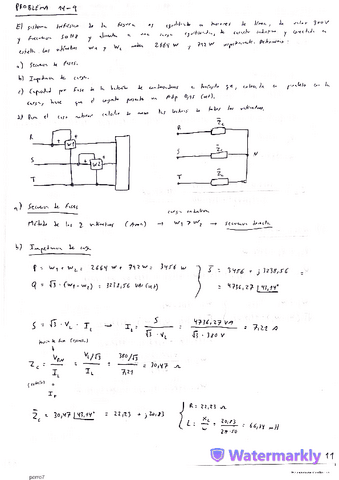 PROBLEMA 11-9
El sistema trifásico de la figura es equilibrado en tensiones de línea, de valor 380 V
y frecuencia 50 Hz y alimenta a una carga equilibrada, de carácter inductivo y conectada en
estrella. Los vatímetros W1 y W2 miden 2664 W y 792 W respectivamente. Determinar:
a) Secuencia de fases.
b) Impedancia de carga.
c) Capacidad por fase de la batería de condensadores a que, en paralelo con la
carga, hace que el conjunto presente un fdp 0,95 (ind).
d) Para el caso anterior calcular de nuevo las lecturas de los vatímetros.
R
W1
S
W2
T
R
Z̄c
S
Z̄c
N
T
Z̄c
a) Secuencia de fases
carga inductiva
Método de los 2 vatímetros (Aron) → W1 > W2 → secuencia directa
b) Impedancia de carga
P = W1 + W2 = 2664 W + 792 W = 3456 W
Q = √3 · (W1 - W2) = 3238,56 VAr (ind)
S̄ = 3456 + j 3238,56 =
= 4736,27 ∠43,14°
S = √3 · VL · IL → IL = S / (√3 · VL) = 4736,27 VA / (√3 · 380 V) = 7,19 A
Zc = VRN / IL = (VL/√3) / IL = (380/√3) / 7,19 = 30,47 Ω
IF
Z̄c = 30,47 ∠43,14° = 22,23 + j 20,83
R = 22,23 Ω
L = XL / ω = 20,83 / (2π·50) = 66,34 mH
Watermarkly
11